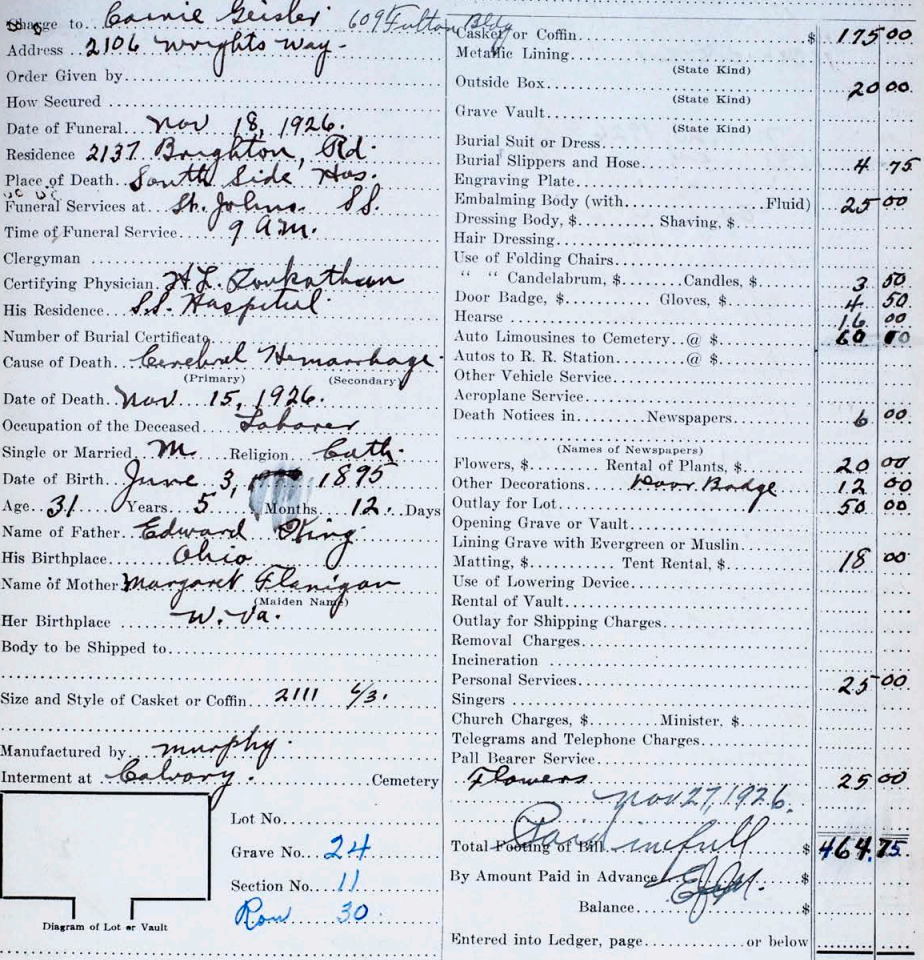 Charge to Carrie Geisler 609 Fulton Bldg
Address 2106 Wrights Way.
Order Given by
How Secured
Date of Funeral Nov 18, 1926.
Residence 2137 Brighton, Rd.
Place of Death South Side Hos.
Funeral Services at St. Johns. SS.
Time of Funeral Service 9 a.m.
Clergyman
Certifying Physician H.L.
His Residence S.S. Hospital
Number of Burial Certificate
Cause of Death Cerebral Hemorrhage.
(Primary) (Secondary)
Date of Death Nov 15, 1926.
Occupation of the Deceased Laborer
Single or Married M Religion Cath.
Date of Birth June 3, 1895
Age 31 Years 5 Months 12 Days
Name of Father Edward King
His Birthplace Ohio
Name of Mother Margaret Flanigan
(Maiden Name)
Her Birthplace W. Va.
Body to be Shipped to
Size and Style of Casket or Coffin 2111 6/3.
Manufactured by Murphy.
Interment at Calvary. Cemetery
Lot No.
Grave No. 24
Section No. 11
Row 30
Diagram of Lot or Vault
Casket or Coffin $ 175 00
Metallic Lining
(State Kind)
Outside Box 20 00
(State Kind)
Grave Vault
(State Kind)
Burial Suit or Dress
Burial Slippers and Hose 4 75
Engraving Plate
Embalming Body (with Fluid) 25 00
Dressing Body, $ Shaving, $
Hair Dressing
Use of Folding Chairs
" " Candelabrum, $ Candles, $ 3 50
Door Badge, $ Gloves, $ 4 50
Hearse 16 00
Auto Limousines to Cemetery @ $ 60 00
Autos to R. R. Station @ $
Other Vehicle Service
Aeroplane Service
Death Notices in Newspapers 6 00
(Names of Newspapers)
Flowers, $ Rental of Plants, $ 20 00
Other Decorations Door Badge 12 00
Outlay for Lot 50 00
Opening Grave or Vault
Lining Grave with Evergreen or Muslin
Matting, $ Tent Rental, $ 18 00
Use of Lowering Device
Rental of Vault
Outlay for Shipping Charges
Removal Charges
Incineration
Personal Services 25 00
Singers
Church Charges, $ Minister, $
Telegrams and Telephone Charges
Pall Bearer Service
Flowers 25 00
Nov 27, 1926.
Paid in full
Total Footing of Bill $ 464.75
By Amount Paid in Advance $
Balance $
Entered into Ledger, page or below